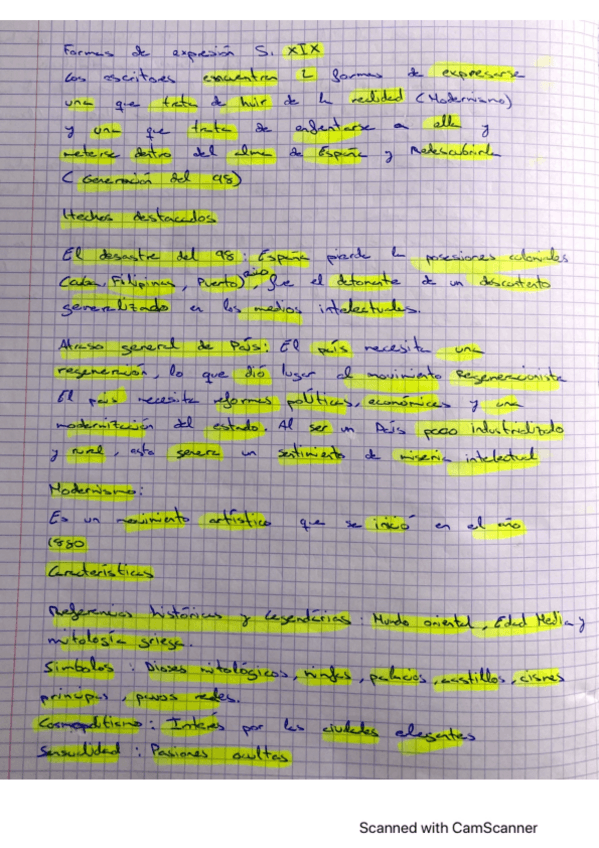 Formas de expresión S. XIX
Los escritores encuentran 2 formas de expresarse
una que trata de huir de la realidad (Modernismo)
y una que trata de enfrentarse a ella y
meterse dentro del alma de España y Redescubrirla
(Generación del 98)
Hechos destacados
El desastre del 98: España pierde la posesiones coloniales
(Cuba, Filipinas, Puerto) , fue el detonante de un descontento
generalizado en los medios intelectuales.
Atraso general de País: El país necesita una
regeneración, lo que dió lugar al movimiento Regeneracionista
El país necesita reformas políticas, económicas y una
modernización del estado. Al ser un País poco industrializado
y rural, esto genera un sentimiento de miseria intelectual
Modernismo:
Es un movimiento artístico que se inició en el año
1880
Características
Referencias históricas y legendárias: Mundo oriental, Edad Media y
mitología griega.
Símbolos: Dioses mitológicos, ninfas, palacios, castillos, cisnes
principes, pavos reales.
Cosmopolitismo: Interés por las ciudades elegantes
Sensualidad: Pasiones ocultas
Scanned with CamScanner